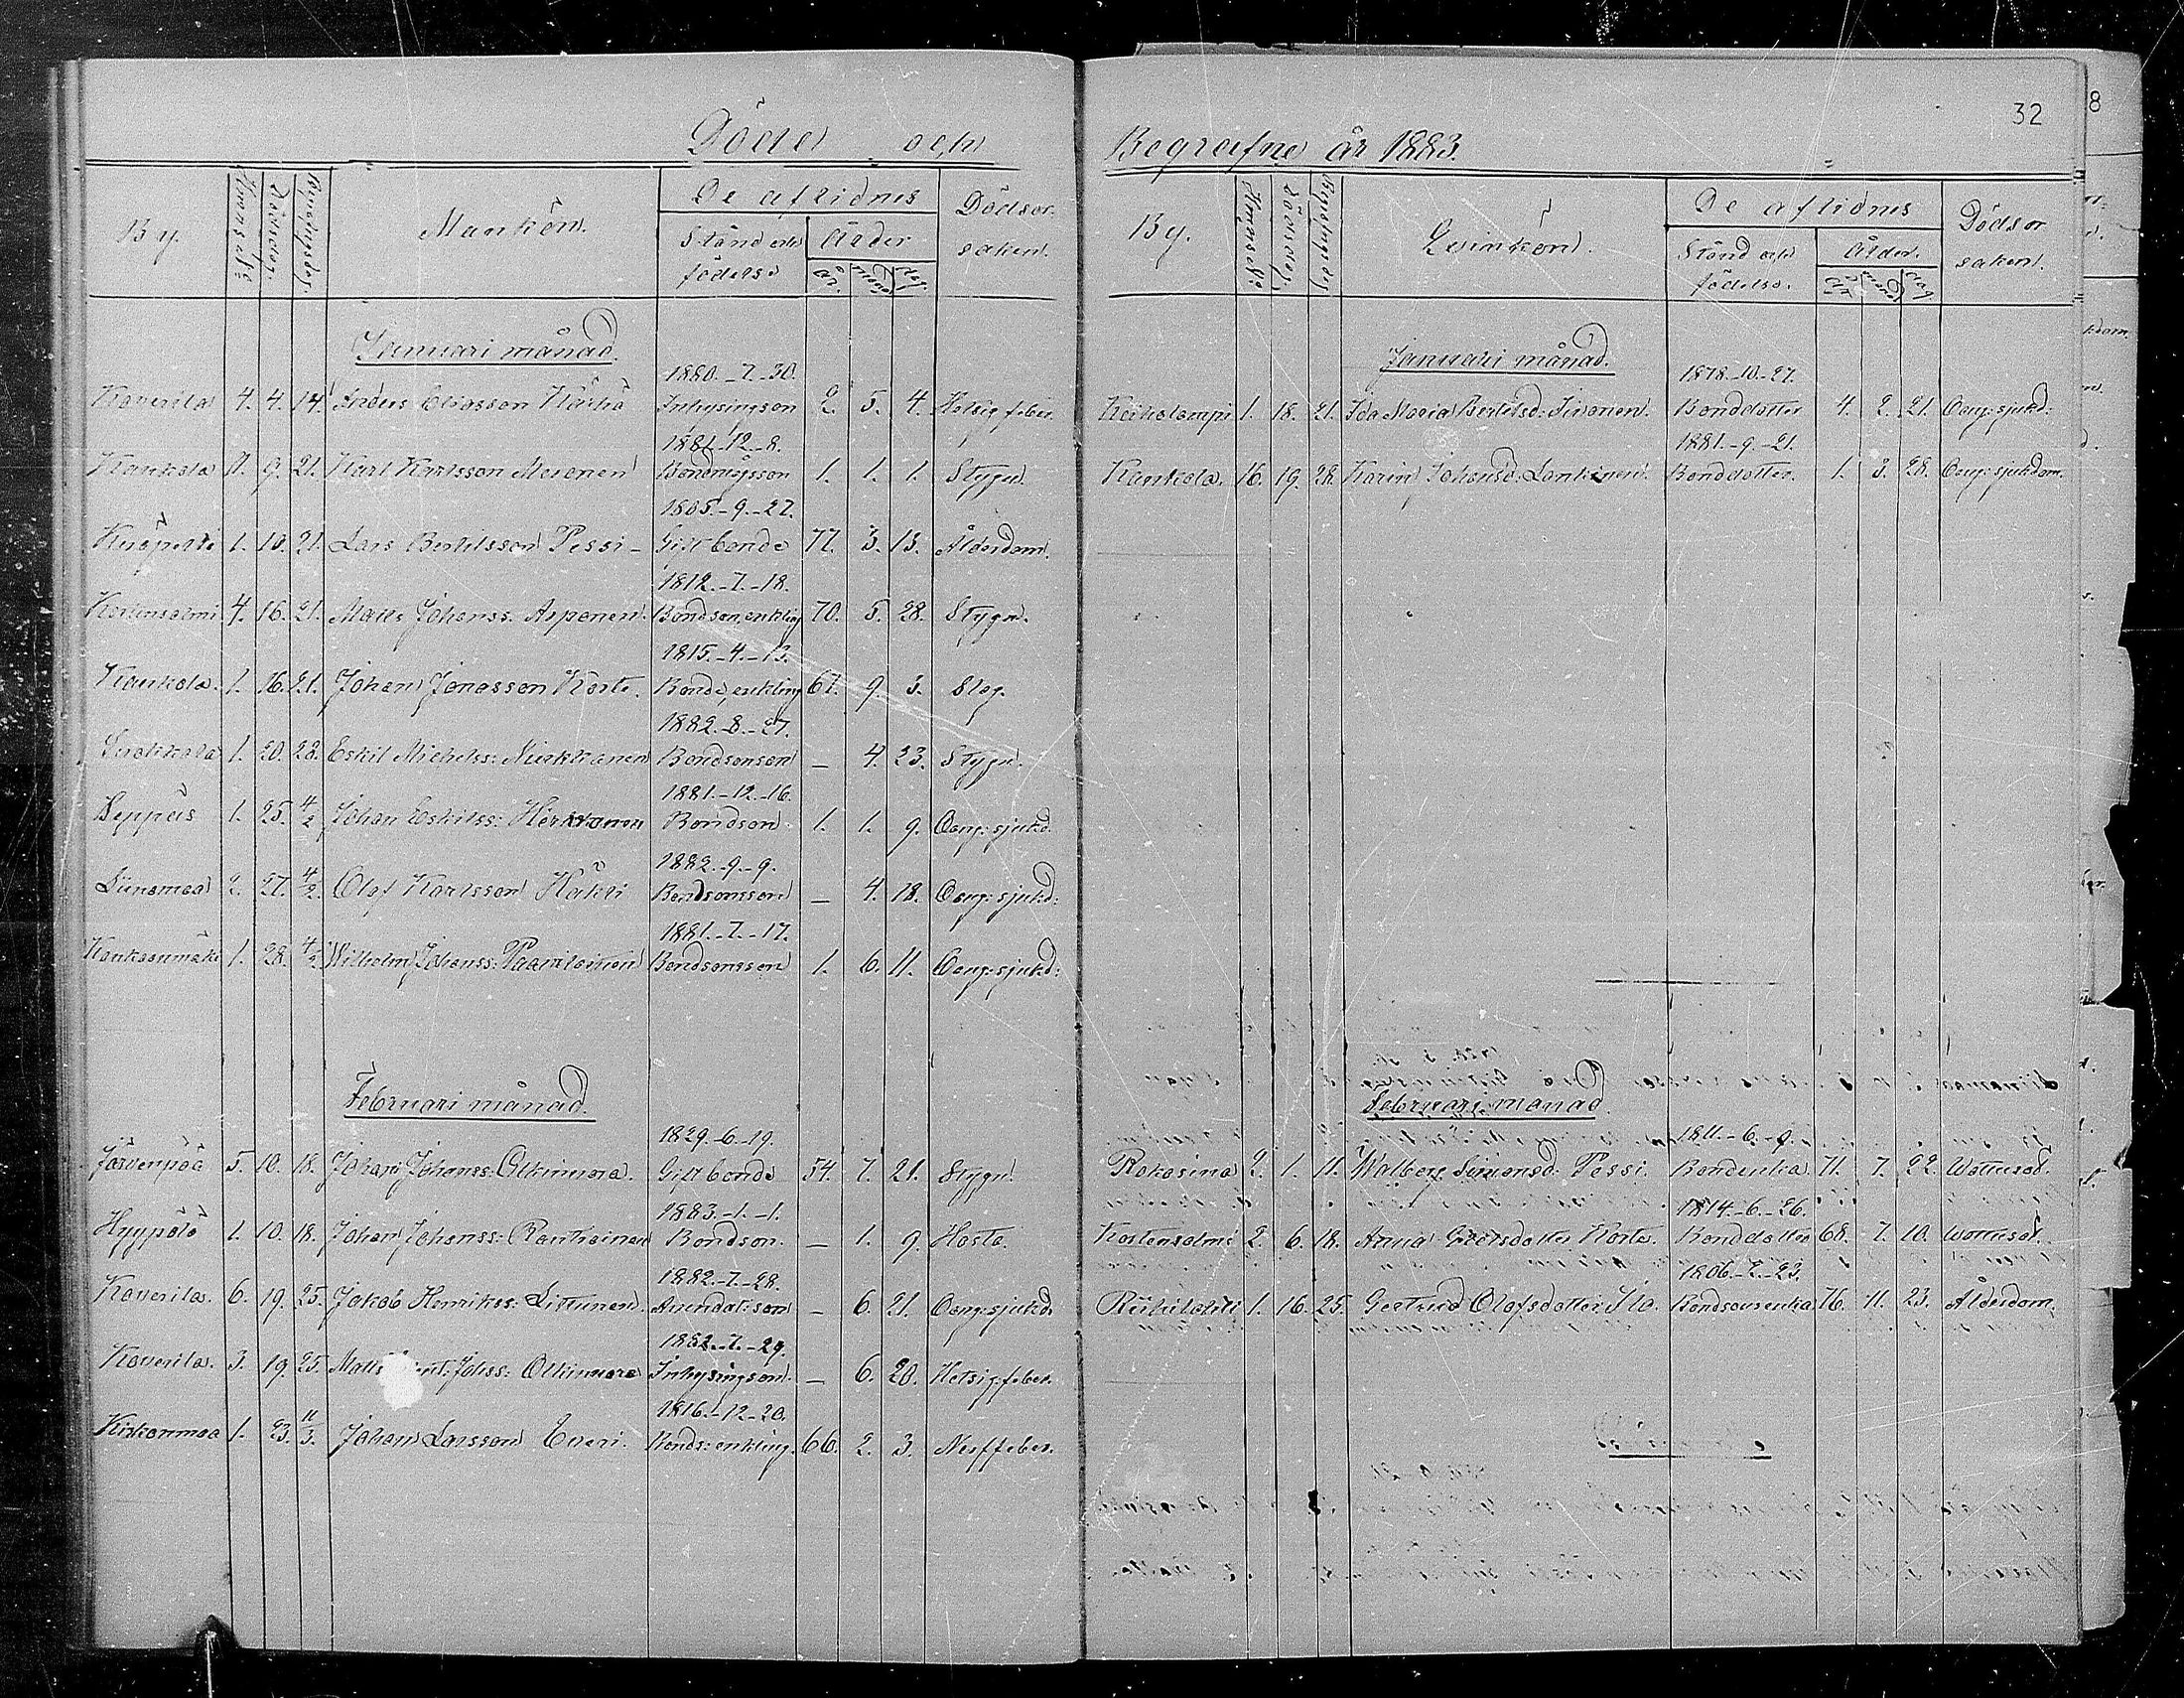 32
8
Döde och
Begrafne år 1883.
By.
Hemm. Nº
Dödsdag.
Begrafn.dag.
Mankön.
De aflidnes
Stånd och födelse
Ålder
år. månd. dag.
Dödsor-
saken.
Januari månad.
1880.-7.-30.
Kaverila 4. 4. 14. Anders Eliasson Härkö Inhysingson 2. 5. 4. Hetsig feber.
1881.-12.-8.
Kaukola 11. 9. 21. Karl Karlsson Meronen Bondmågsson 1. 1. 1. Stygn.
1805.-9.-27.
1. 10. 21. Lars Bertilsson Pessi Gift bonde 77. 3. 13. Ålderdom.
1812.-7.-18.
Kortensalmi 4. 16. 21. Matts Johanss: Asponen. Bondson, enkling 70. 5. 28. Stygn.
1815.-4.-13.
Kaukola. 1. 16. 21. Johan Jonasson Korte. Bonde, enkling 67. 9. 3. Slag.
1882.-8.-27.
Suokkola 1. 20. 28. Eskil Michelss: Nuikkanen Bondsonson — 4. 23. Stygn.
1881.-12.-16.
1. 25. 4/2 Johan Eskilss: Bondson. 1. 1. 9. Oang: sjukd.
1882.-9.-9.
Liinamaa 2. 27. 4/2. Olof Karlsson Häkli Bondsonsson — 4. 18. Oang: sjukd:
1881.-7.-17.
Kankaanmäki 1. 28. 4/2. Wilhelm Johanss: Paavilainen Bondsonsson 1. 6. 11. Oang: sjukd:
Februari månad.
1829.-6.-19.
Järvenpää 5. 10. 18. Johan Johanss: Olkinuora. Gift bonde 54. 7. 21. Stygn.
1883.-1.-1.
Hyypölö 1. 10. 18. Johan Johanss: Rantiainen Bondson. — 1. 9. Hosta.
1882.-7.-28.
Kaverila. 6. 19. 25. Jakob Henrikss: Littunen. Arendat: son — 6. 21. Oang: sjukd.
1882.-7.-29.
Kaverila. 3. 19. 25. Matts Johss: Olkinuora Inhysingson. — 6. 20. Hetsig feber.
1816.-12.-20.
Kirkonmaa 1. 23. 11/3. Johan Larsson Everi. Bonds: enkling. 66. 2. 3. Nerffeber.
By.
Hemm. Nº
Dödsdag.
Begrafn.dag
Qvinkön.
De aflidnes
Stånd och födelse.
Ålder.
år månd dag
Dödsor
saken.
Januari månad.
1878.-10.-27.
Kärkolampi 1. 18. 21. Ida Maria Bertilsd: Sironen. Bonddotter 4. 2. 21. Oang: sjukd:
1881.-9.-21.
Kaukola. 16. 19. 28. Karin Johansd: Lankinen. Bonddotter. 1. 3. 28. Oang: sjukdom.
Februari månad.
1811.-6.-9.
Rokosina 2. 1. 11. Walborg Simonsd: Pessi. Bondenka 71. 7. 22. Wattusot.
1814.-6.-26.
Kortensalmi 2. 6. 18. Anna Georsdotter Korte. Bonddotter 68. 7. 10. Wattusot.
1806.-2.-23.
Riihilahti 1. 16. 25. Gertrud Olofsdotter Ilo. Bondsonsenka 76. 11. 23. Ålderdom.